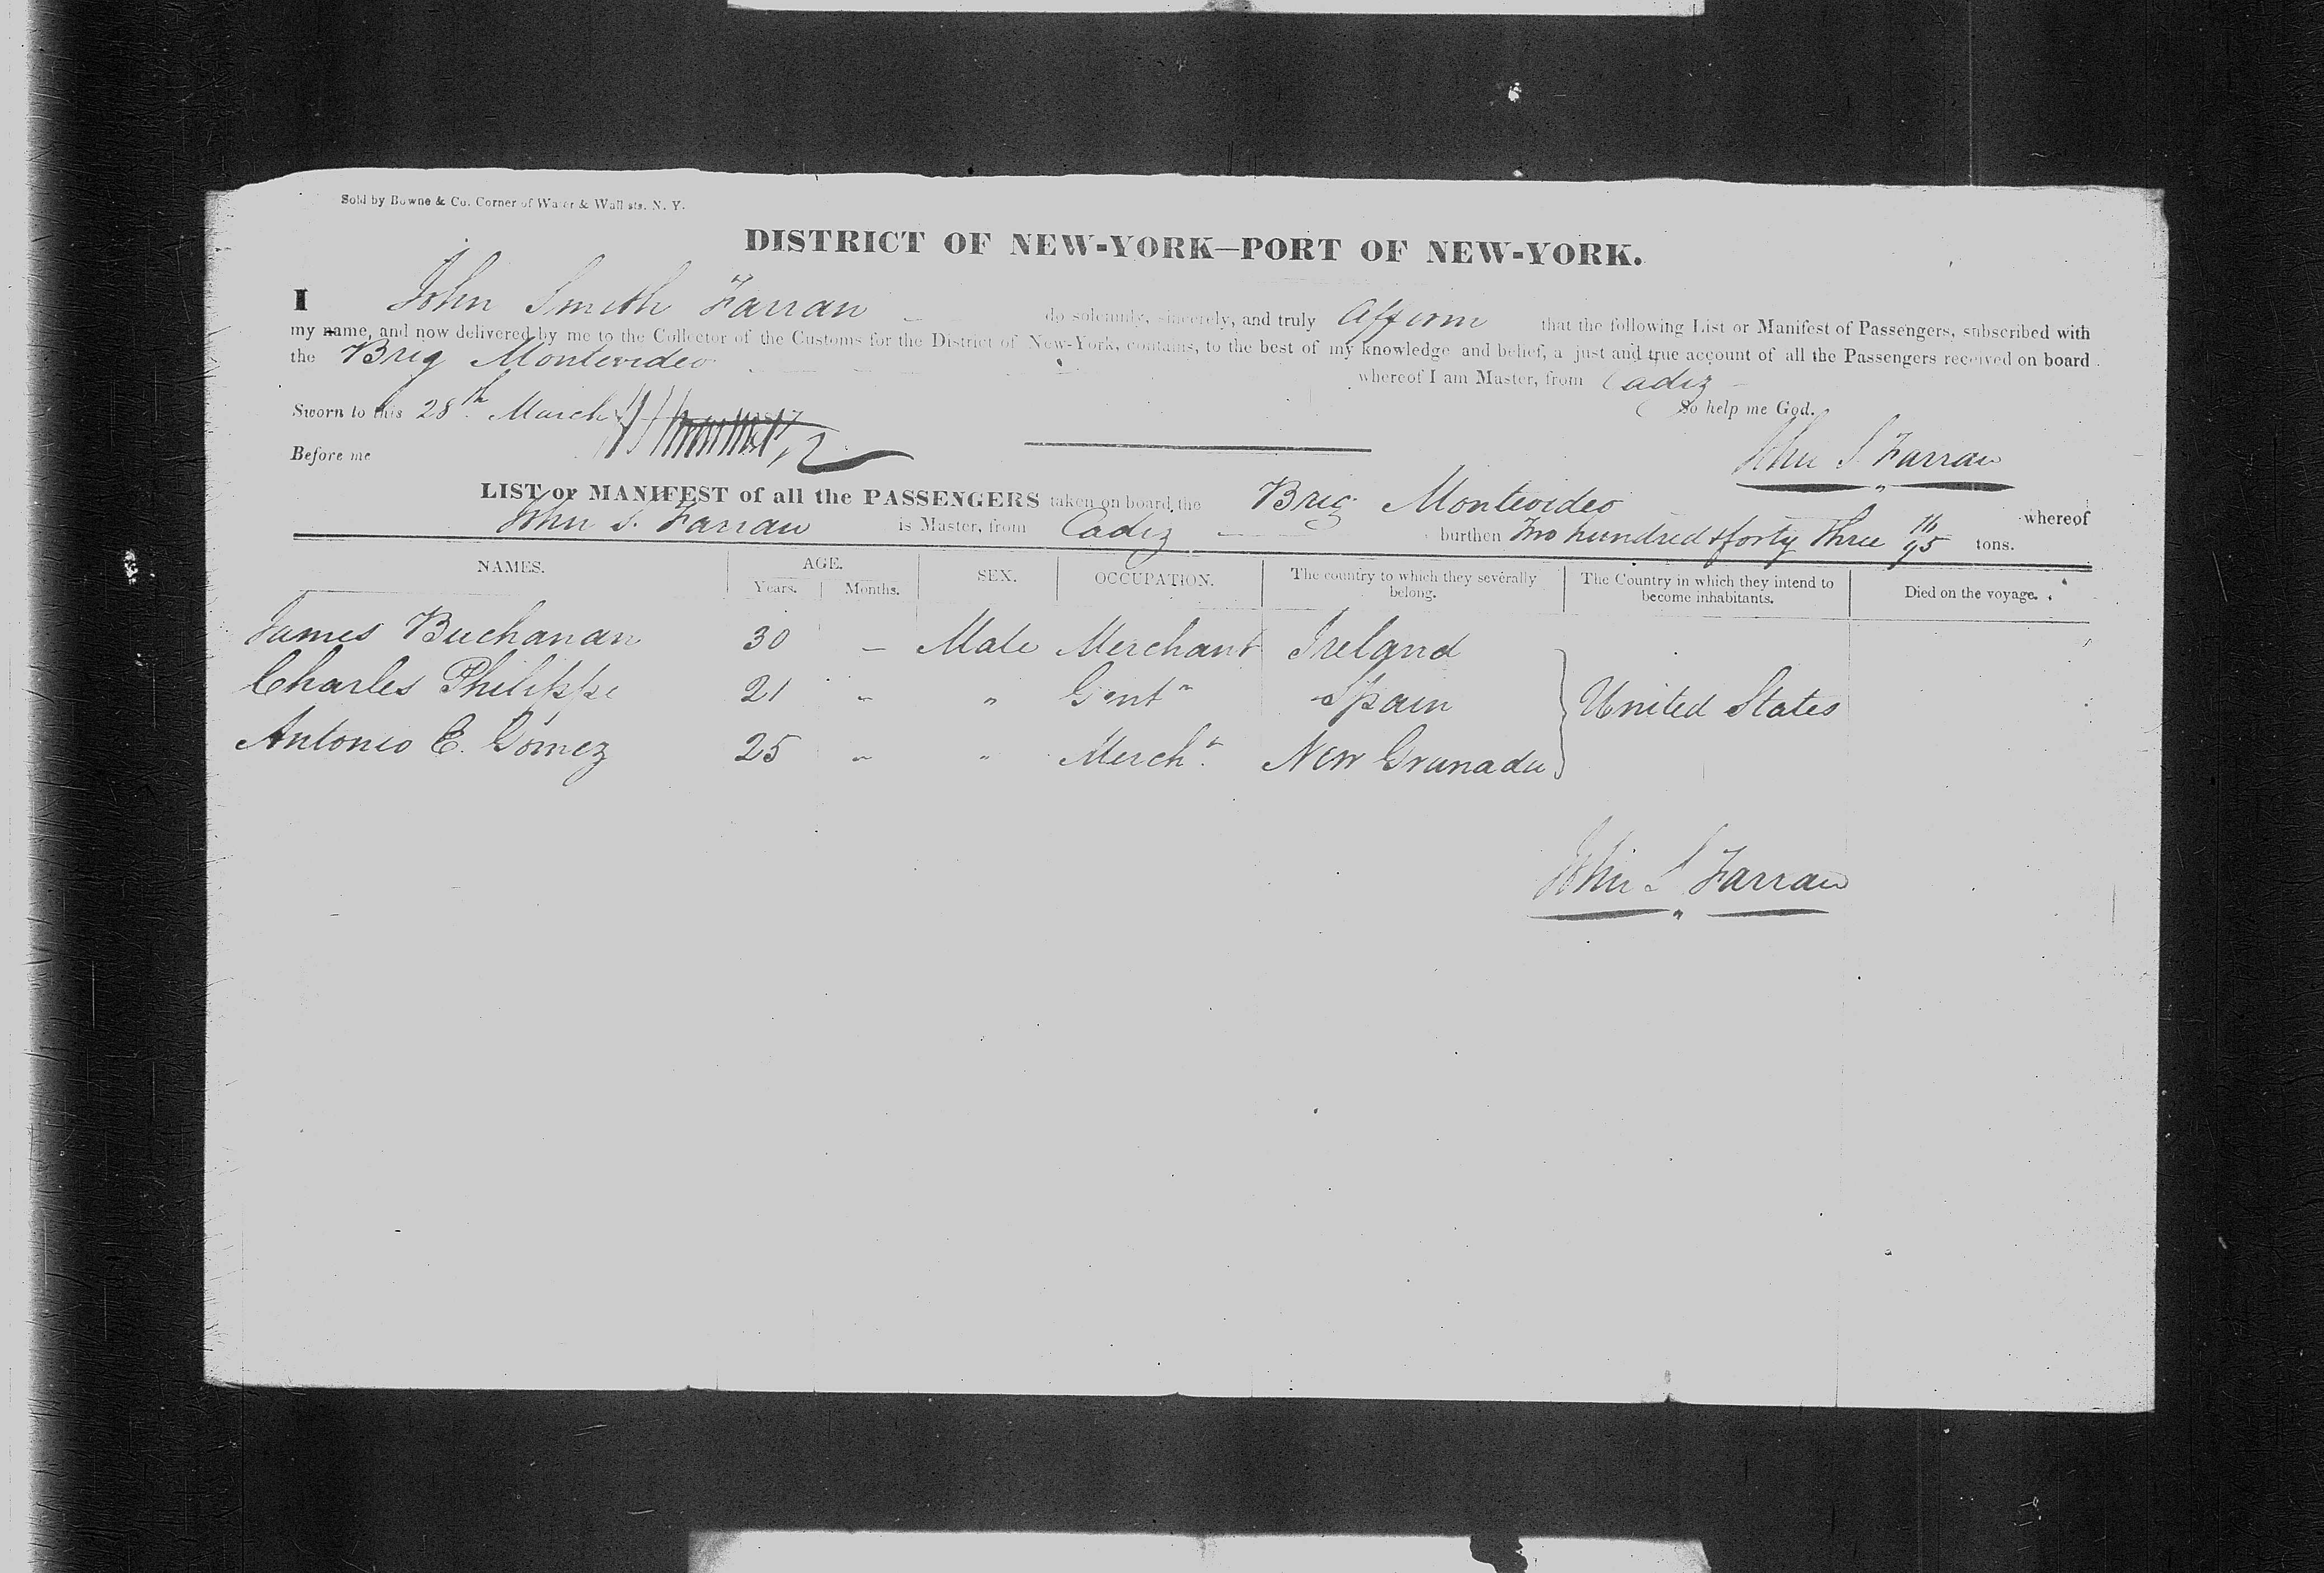 Sold by Bowne & Co. Corner of Water & Wall sts. N. Y.
DISTRICT OF NEW-YORK—PORT OF NEW-YORK.
I John Smith Farran do solemnly, sincerely, and truly Affirm that the following List or Manifest of Passengers, subscribed with
my name, and now delivered by me to the Collector of the Customs for the District of New-York, contains, to the best of my knowledge and belief, a just and true account of all the Passengers received on board
the Brig Montevideo whereof I am Master, from Cadiz
Sworn to this 28th March So help me God.
Before me John S Farran
LIST or MANIFEST of all the PASSENGERS taken on board the Brig Montevideo whereof
John S. Farran is Master, from Cadiz burthen Two hundred & forty Three 16/95 tons.
NAMES. AGE. SEX. OCCUPATION. The country to which they severally belong. The Country in which they intend to become inhabitants. Died on the voyage.
Years. Months.
James Buchanan 30 — Male Merchant Ireland
Charles Philippe 21 " " Gentn Spain United States
Antonio E. Gómez 25 " " Mercht. New Granada
John S Farran